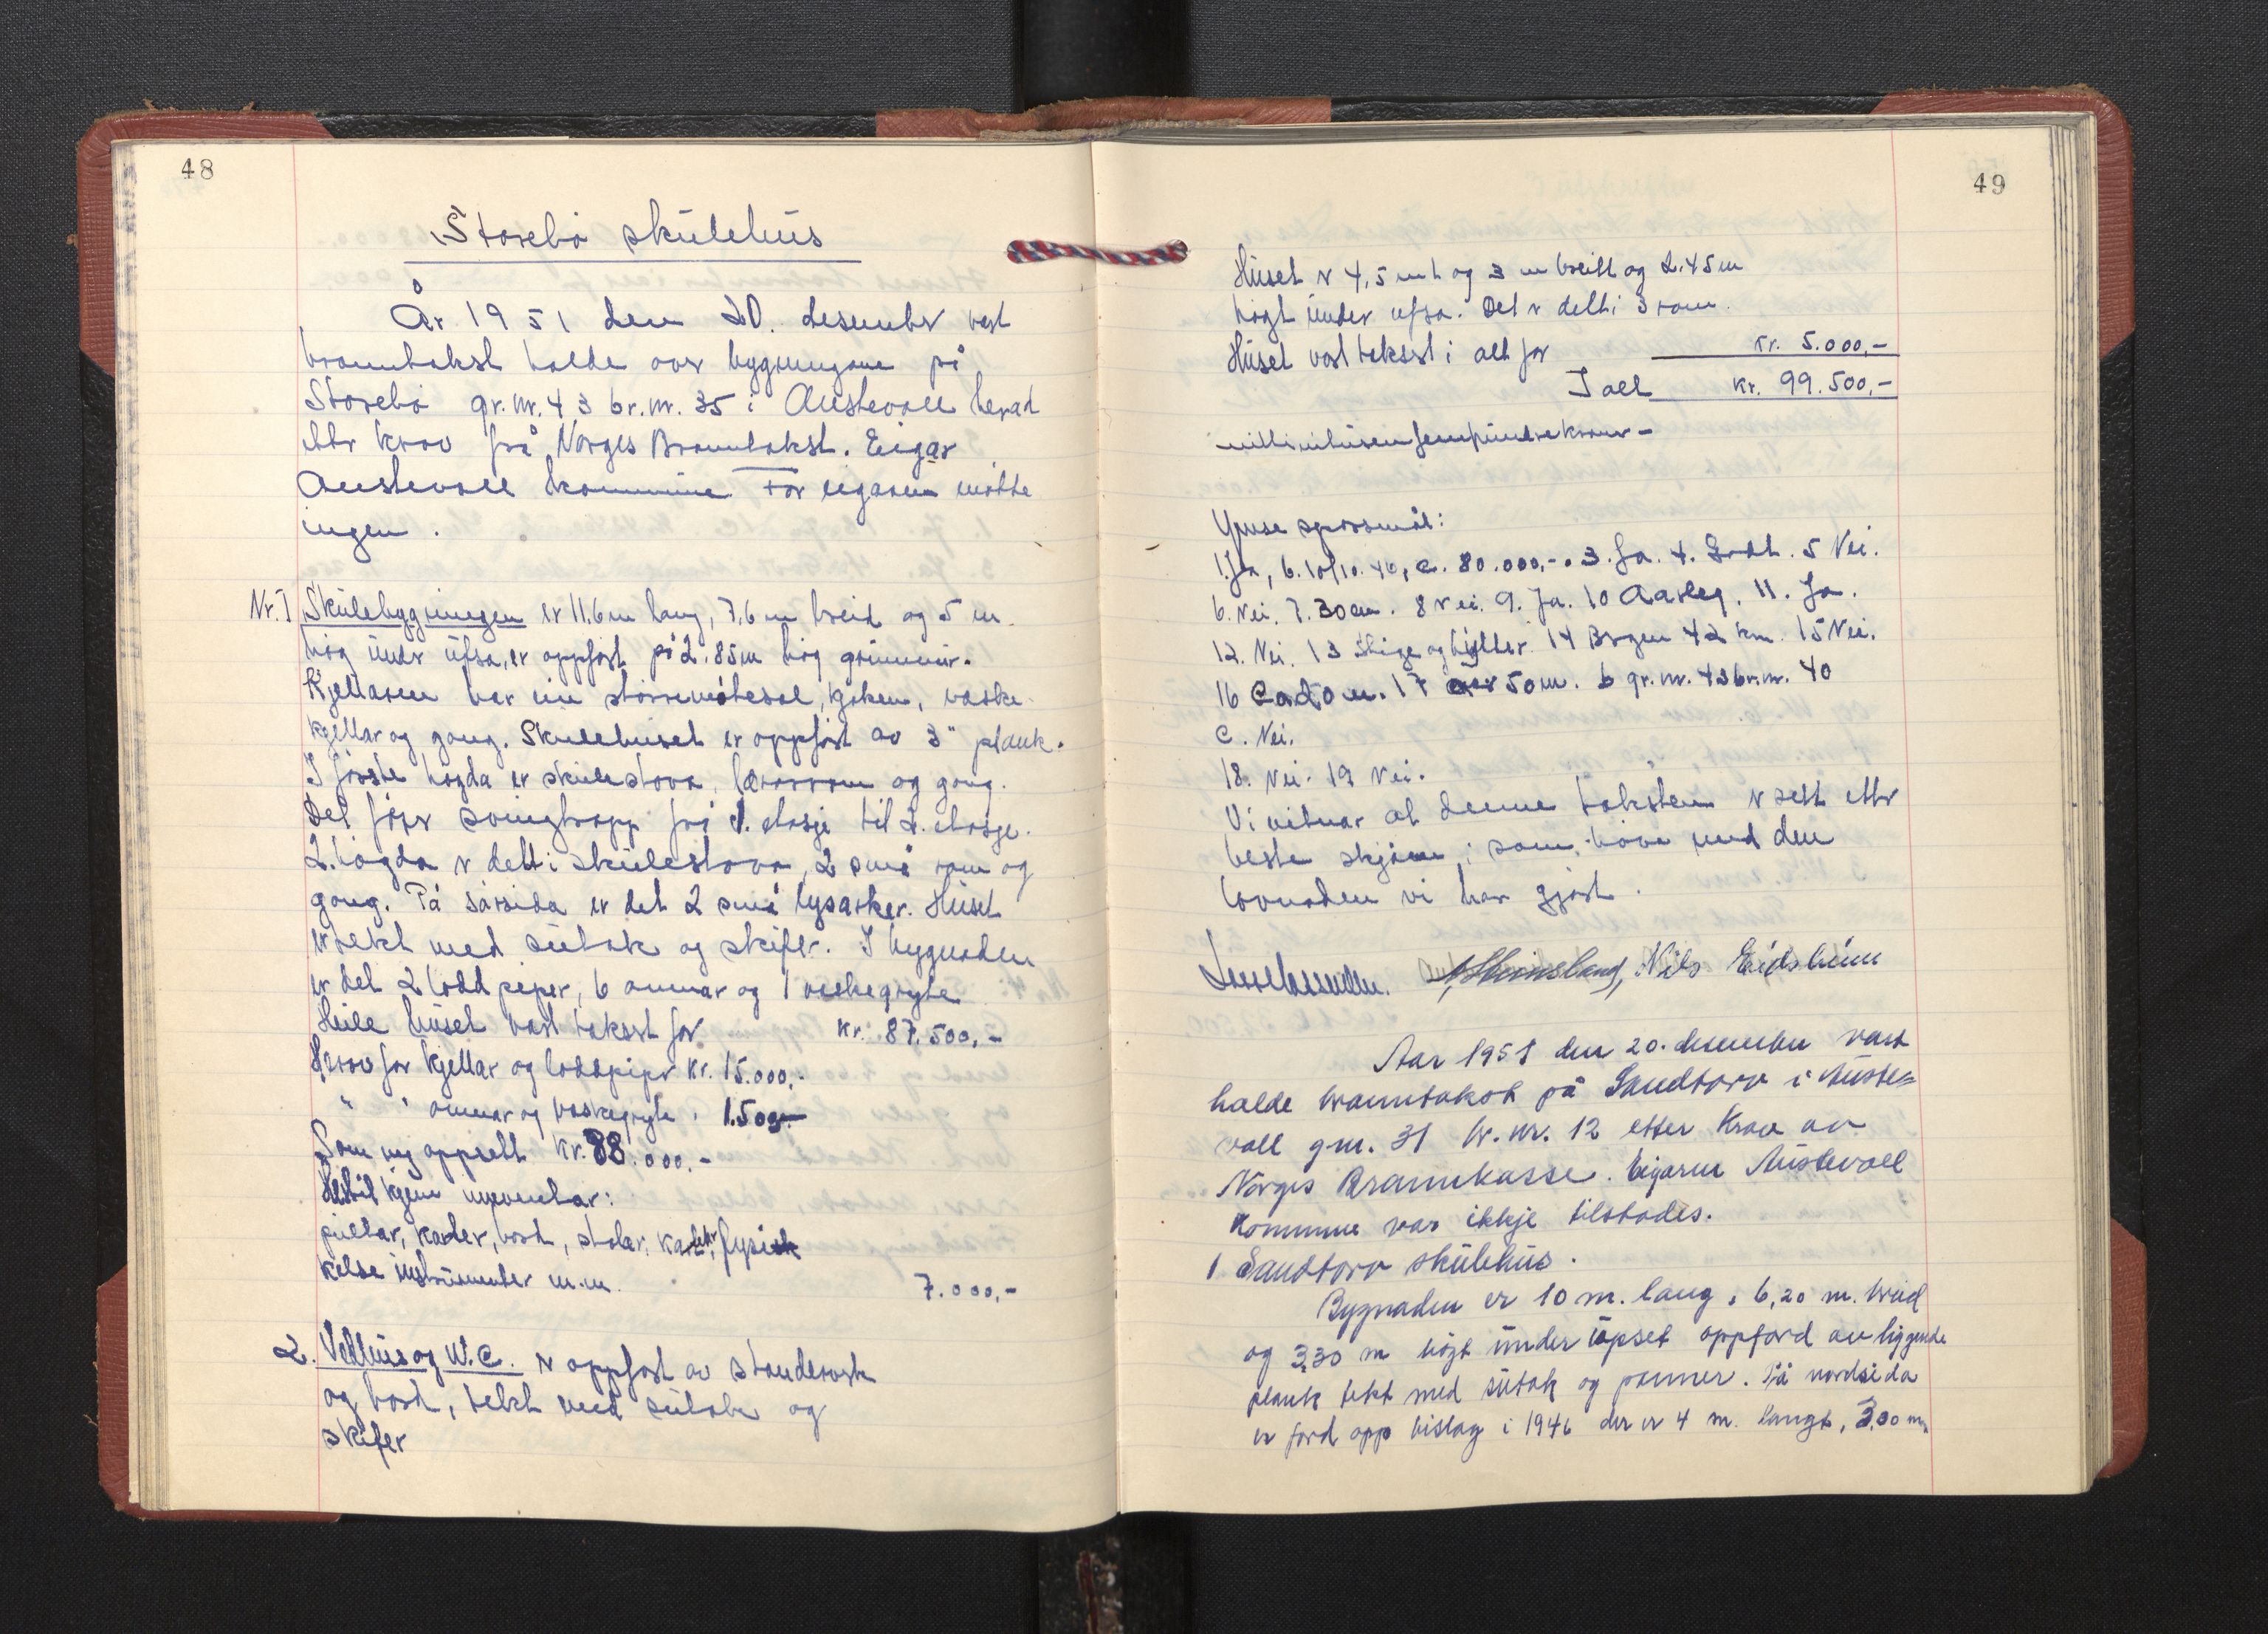 48
Storebø skúlehús
År 1951 den 20. desember vart
branntakst halde over bygningane på
Storebø gr.nr. 43 br.nr. 35 i Austevoll herad
etter krav frå Norges Branntakst. Eigar
Austevoll kommune For eigaren møtte
ingen.
Nr. I Skúlebygningen er 11,6m lang, 7,6m breid og 5 m.
høg únder úfsa, er oppført på 2.85m høg grúnnmúr.
Kjellaren har ein større møtesal, kjøken, vaske-
kjellar og gang. Skulehúset er oppført av 3" plank.
I første høgda er skúlestova, lærarrom og gang.
Det fører svingtrapp frå 1. etasje til 2. etasje.
2. høgda er delt i skúlestova, 2 små rom og
gang. På sørsida er det 2 små lysarker. Húset
er tekt med sútak og skifer. I bygnaden
er det 2 lodd piper, 6 omnar og 1 vaskegryte
Heile húset vart taksert for kr. 87.500,-
Herav for kjellar og loddpiper kr. 15.000,-
" " omnar og vaskegryte " 1.500,-
Som ny oppsett kr. 88.000.-
Attåt kjem inventar:
púltar, karter, bord, stolar, fysisk
instrúmenter m.m. 7.000,-
2. Vedhús og W.C. er oppført av standerverk
og bord, tekt med sútak og
skifer
49
Húset er 4,5 m l og 3 m breitt og 2.45 m
høgt únder ufsa. Det er delt i 3 rom.
Húset vart taksert i alt for kr. 5.000,-
I alt kr. 99.500,-
nittinitúsenfemhúndrekroner-
Ymse spørsmål:
1. Ja, b. 10/10. 40, c. 80.000,-. 3. Ja. 4. Godt. 5 Nei.
6. Nei. 7. 30 cm. 8 Nei. 9. Ja. 10 Aarleg. 11. Ja.
12. Nei. 13 Stige og bøtter. 14 Bergen 42 km. 15 Nei.
16 Ca 20 m. 17 over 50 m. b gr.nr. 43 br.nr. 40
c. Nei.
18. Nei. 19 Nei.
Vi vitnar at denne taksten er sett etter
beste skjøn i samhøve med den
lovnaden vi har gjort.
Nils Eidsheim
Aar 1951 den 20. desember vart
halde branntakst på Sandtorv i Auste=
voll gnr. 31 br. nr. 12 etter krav av
Norges Brannkasse. Eigaren Austevoll
Kommune var ikkje tilstades.
1 Sandtorv skúlehús.
Bygnaden er 10 m. lang, 6,20 m. breid
og 3,30 m høgt únder úpset oppførd av liggende
plank tekt med sútak og panner. På nordsida
er førd opp bislag i 1946 der er 4 m. langt, 3,00 m.